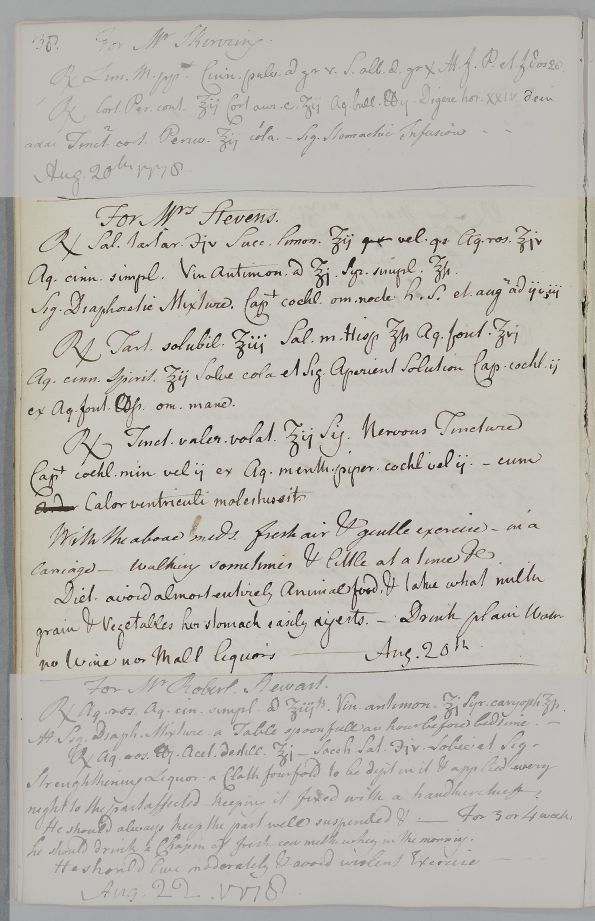 38. For Mr Skirving.
℞ Lim. M. ppt. Cinn. pulv. a gr v. S. alb. d. gr x Mt. f. P. et f. dos 28.
℞ Cort. Per. cont. ʒij Cort aur. c. ʒij Aq. bull. ℔ij. Digere hor. XXIV. dein
adde Tinct. cort. Peruv. ʒij cola. – Sig. Stomachic Infusion
Aug. 20th 1778.
For Mrs Stevens.
℞ Sal. tartar. ʒiv Succ. limon. ʒij vel. qs Aq. ros. ʒiv
Aq. cinn. simpl. Vin Antimon. a ʒj. Syr. simpl. ʒß.
Sig. Diaphoretic Mixture. Capt. cochl. om. nocte h. S. et augr ad ij v. iij
℞ Tart. solubil. ʒiij Sal. m. Hisp ʒß Aq. font. ʒvj
Aq. cinn. spirit. ʒij Solve cola et Sig. Aperient Solution Cap. cochl. ij
ex Aq. font. ℔ß. om. mane.
℞ Tinct. valer. volat. ʒij Sig. Nervous Tincture
Capt. cochl. min vel ij ex Aq. menth. piper. cochl vel ij. – cum
Calor ventriculi molestus sit
With the above meds. fresh air & gentle exercise – in a
carriage – walking sometimes & little at a time &c
Diet. avoid almost entirely Animal food, & take what milk
grain & Vegetables her stomach easily digests. – Drink plain Water
no Wine nor Malt liquors Aug. 20th
For Mr Robert Stewart.
℞ Aq. ros. Aq. cin. simpl. a ʒiijß. Vin. antimon. ʒj Syr. caryoph. ʒß.
Mt. Sig. diaph. Mixture. a Table spoonfull an hour before bedtime. –
℞ Aq. ros. ℔j. Acet. destill. ʒj – Sacch Sat. ʒiv. Solve et Sig.
Strengthening Liquor. a Cloath fourfold to be dipt in it & applied every
night to the part affected keeping it fixed with a handkercheif;
He should always keep the part well suspended & – For 3 or 4 weeks
he should drink a Chapin of fresh cow milk whey in the morning.
He should live moderately & avoid violent Exercise –
Aug. 22. 1778.